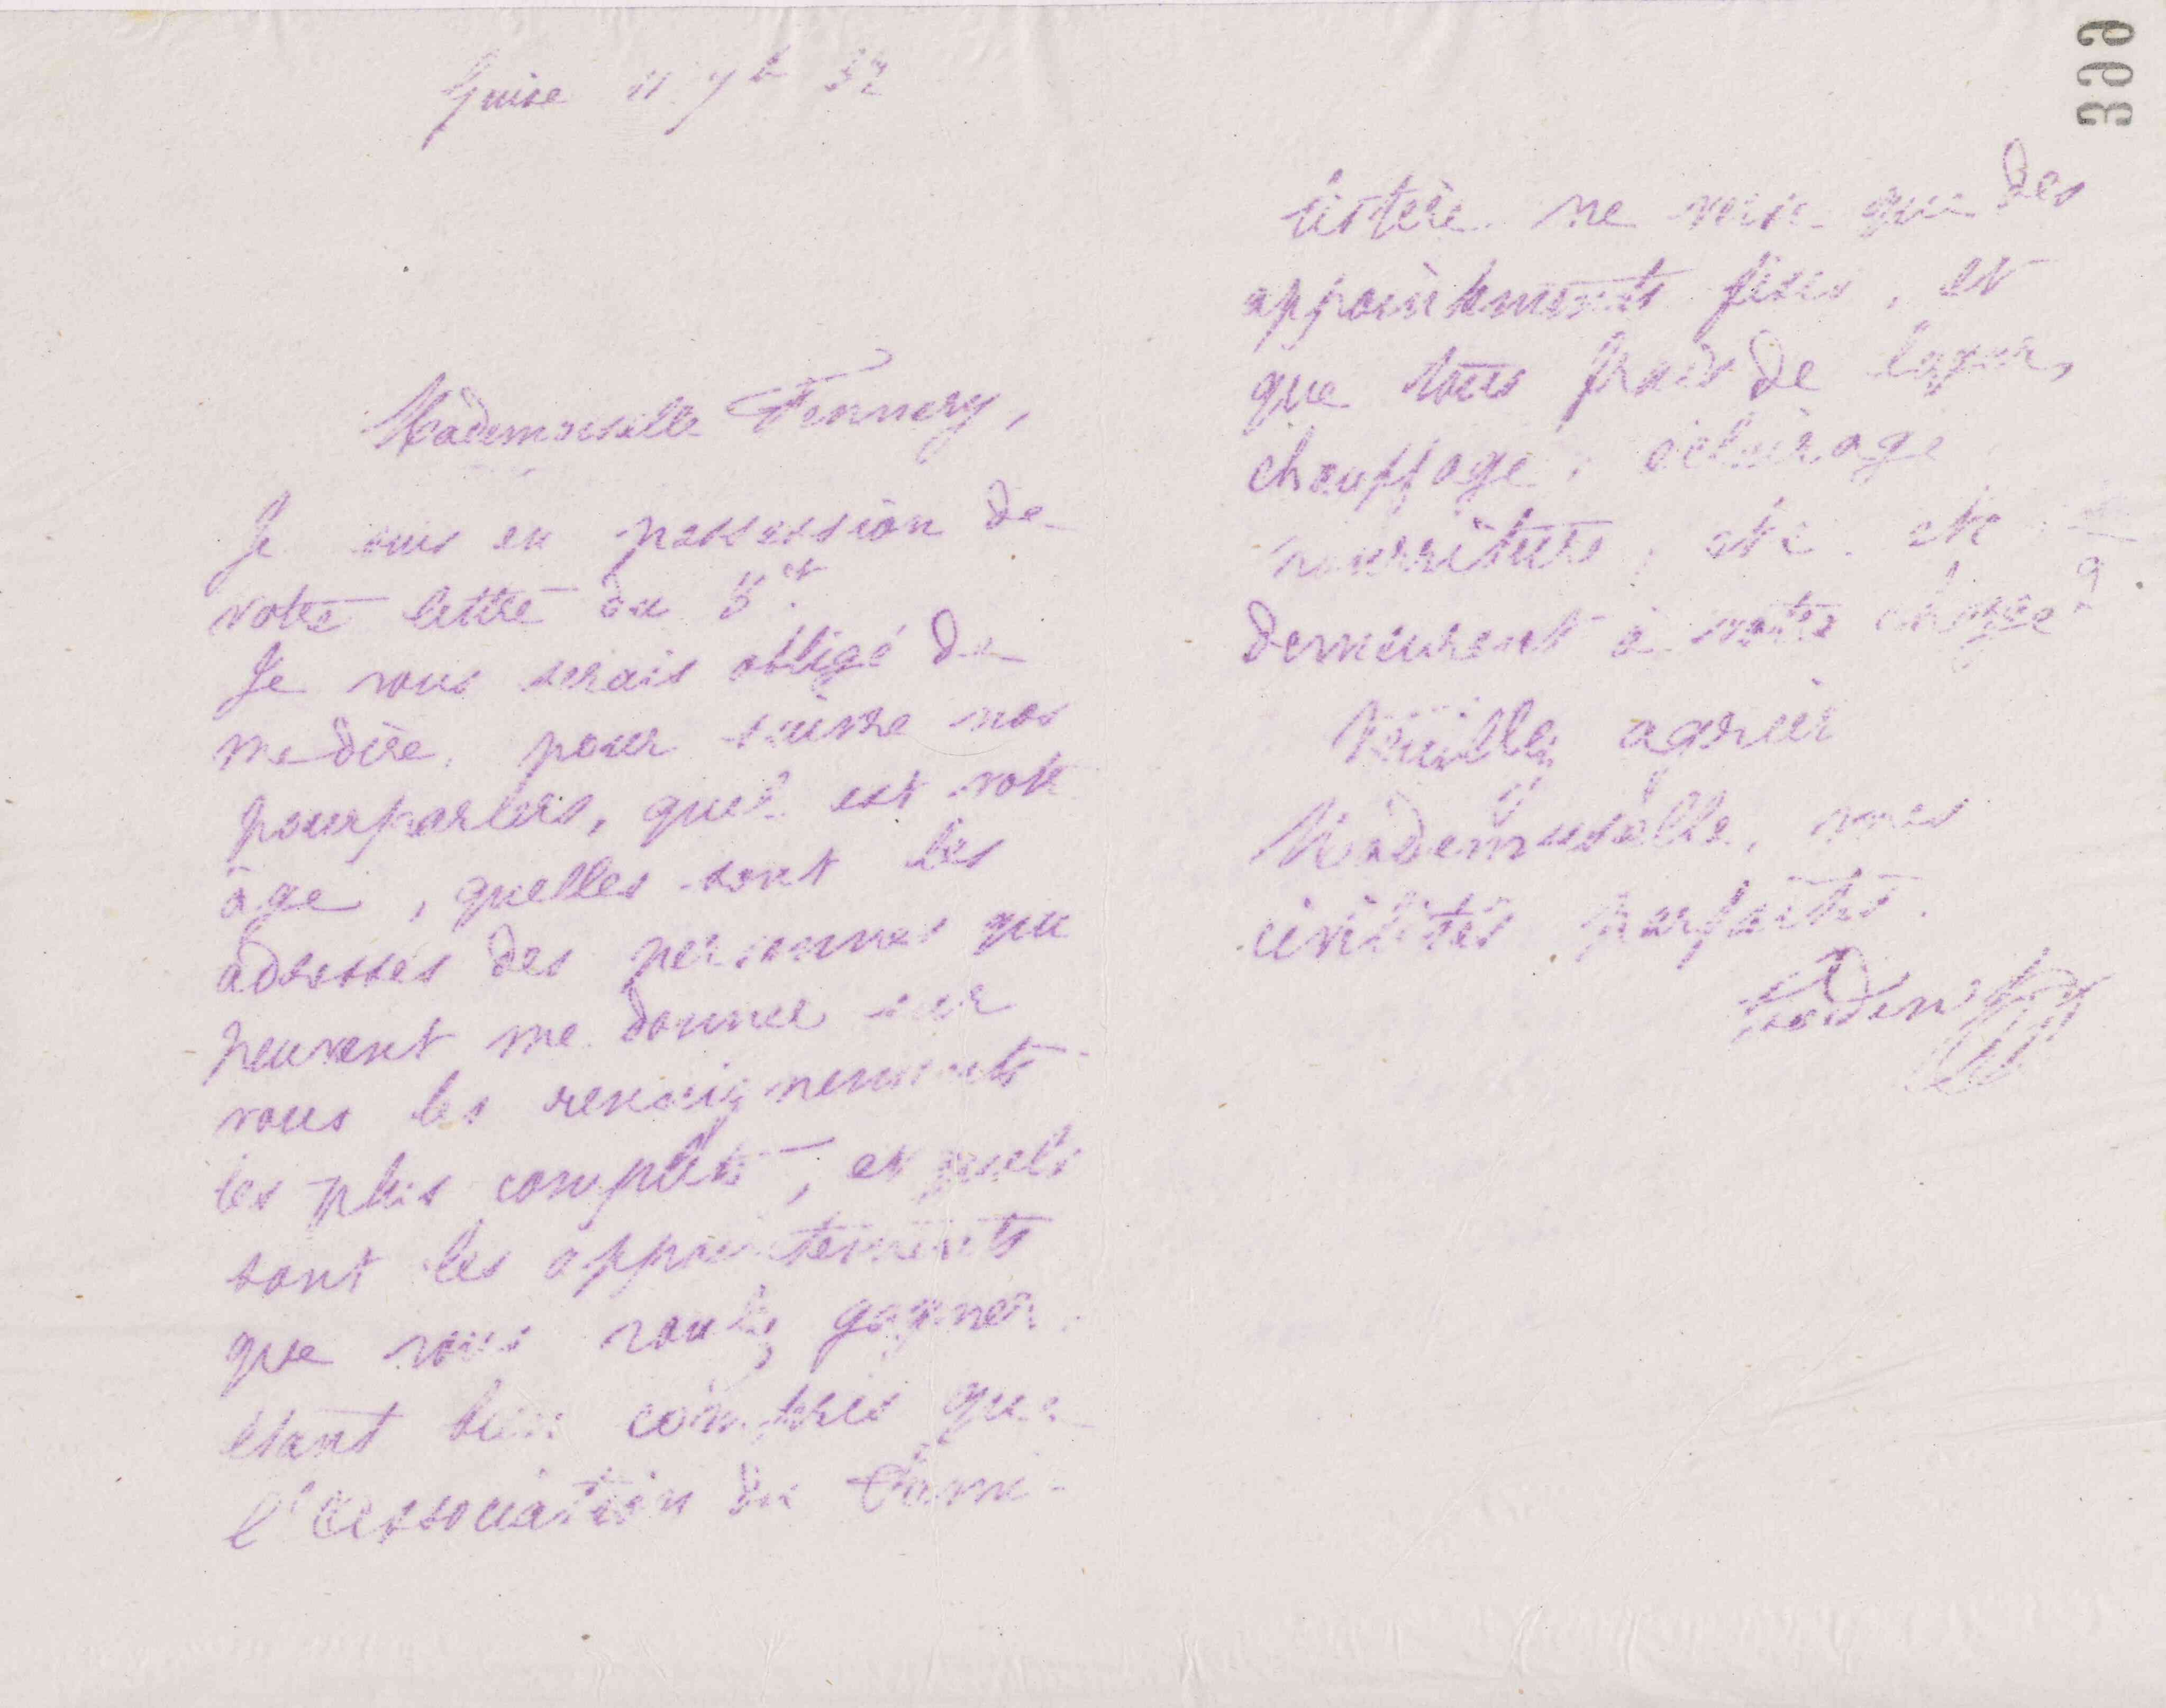 Guise 11 7b 82
Mademoiselle Fennory,
Je suis en possession de
votre lettre du 5 ct
Je vous serais obligé de
me dire, pour suivre nos
pourparlers, quel est votre
âge, quelles sont les
adresses des personnes qui
peuvent me donner sur
vous les renseignements
les plus complets, et quels
sont les appointements
que vous voulez gagner,
étant bien compris que
l'association du Fami-
listère ne verse que des
appointements fixes, et
que tous frais de loyer,
chauffage, éclairage
nourriture, etc. etc
demeurent à votre charge
Veuillez agréer
Mademoiselle, mes
civilités parfaites.
Godin
399